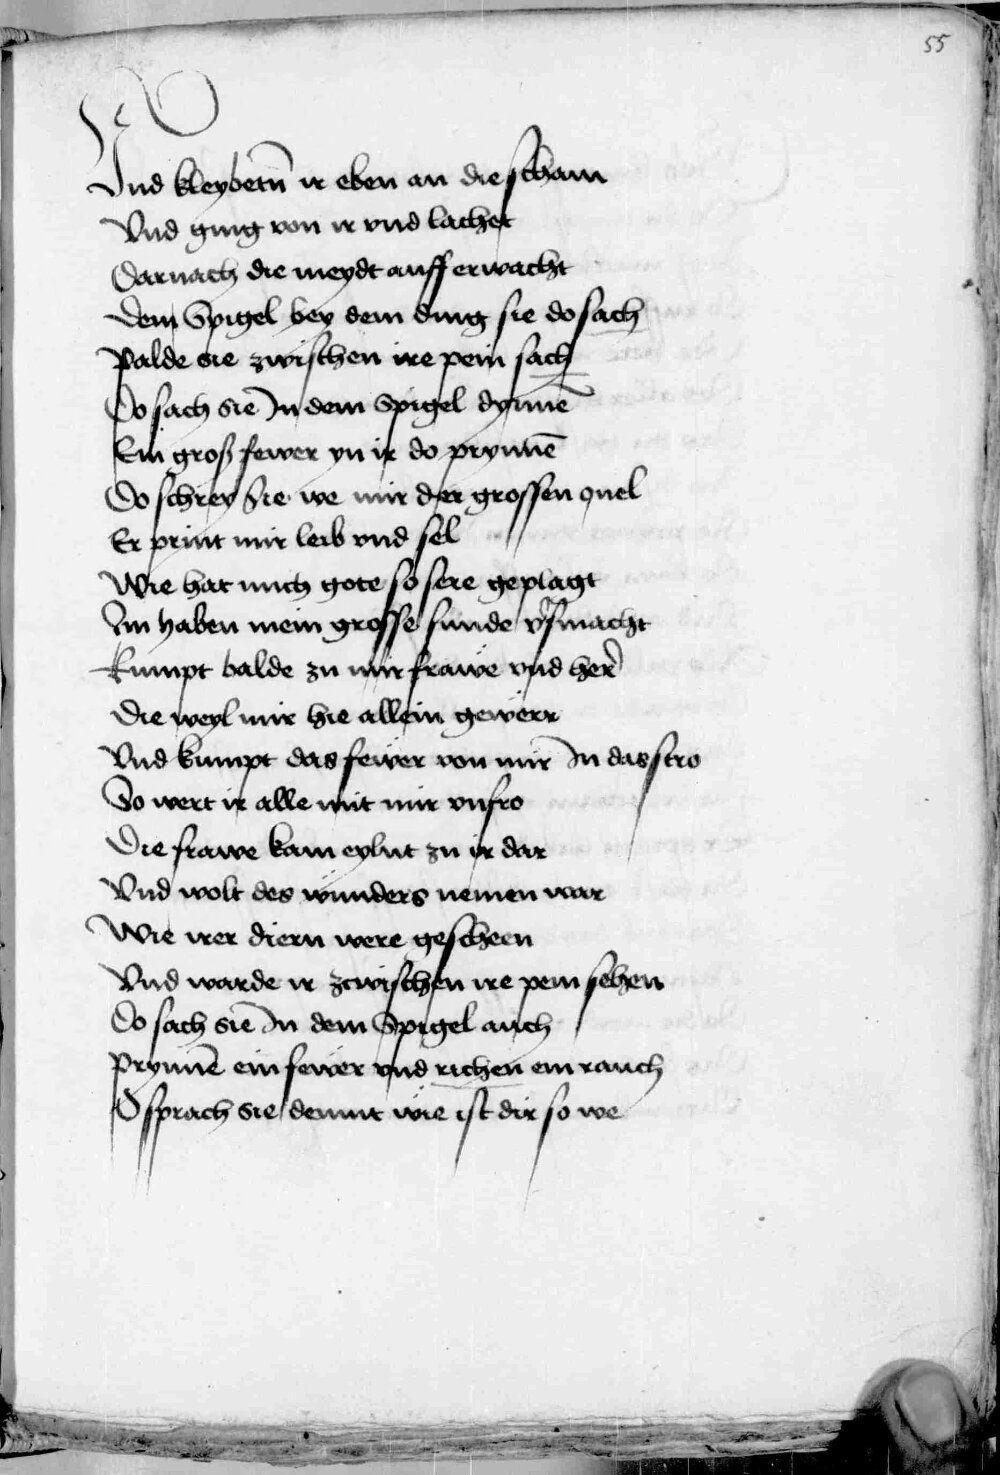 55
Vnd kleybetn̄ ir eben an die scham
Vnd ging von ir vnd lachet
Darnach die meydt auff erwacht
Dem Spigel bey dem ding sie do sach
Palde sie zwischen ire pein sach
Do sach sie In dem Spigel dynnē
Ein groß fewer yn ir do prynnē
Do schrey Sie we mir der grossen quel
Er print mir leib vnd sel
Wie hat mich gote so sere geplagt
Im haben mein grosse sunde v̾smacht
Kumpt balde zu mir frawe vnd her̾
Die weyl mir hie allein gewerr
Vnd kumpt das fewer von mir In das stro
So wert ir alle mit mir vnfro
Die frawe kam eylnt zu ir dar
Vnd wolt des wunders nemen war
Wie irer diern were gescheen
Vnd warde ir zwischen ire pein sehen
Do sach sie In dem Spigel auch
Prynnē ein fewer vnd richen ein rauch
O sprach sie dennt wie ist dir so we